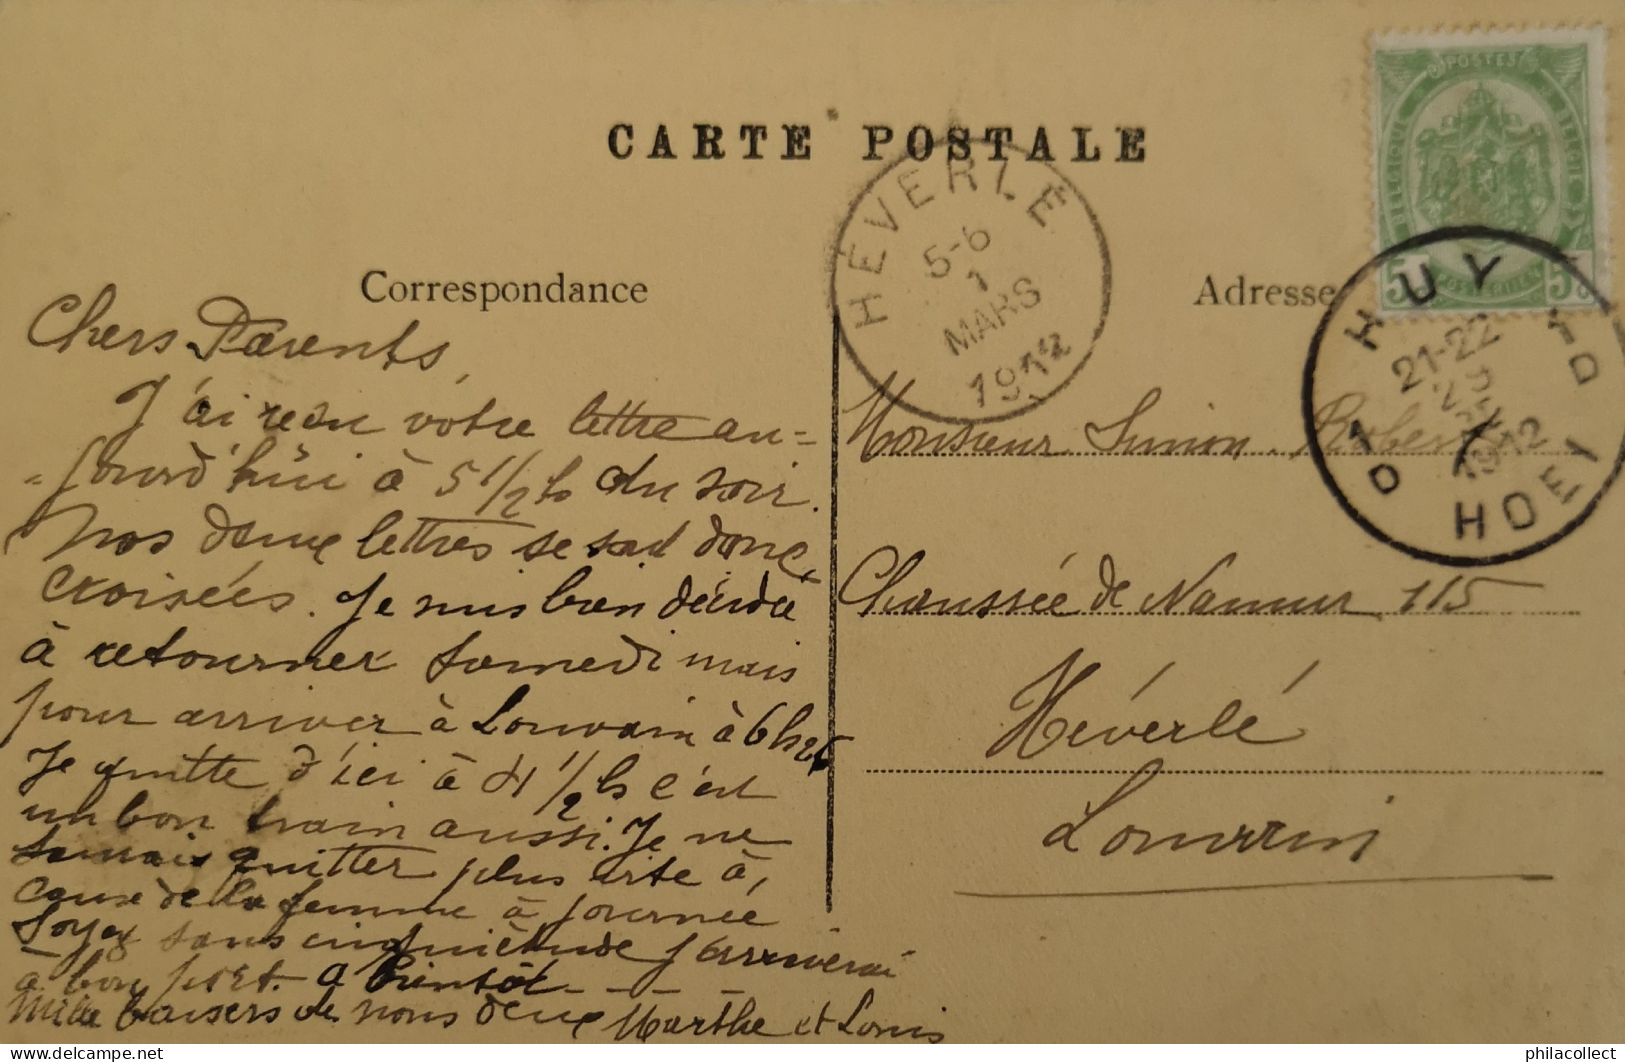 CARTE POSTALE
Correspondance
Chers Parents,
J'ai reçu votre lettre au=
=jourd'hui à 5 1/2 h du soir.
Nos deux lettres se sont donc
croisées. Je suis bien décidée
à retourner samedi mais
pour arriver à Louvain à 6 h 26
Je quitte d'ici à 4 1/2 h c'est
un bon train aussi. Je ne
saurais quitter plus vite à
cause de la femme à journée
Soyez sans inquiètude j'arriverai
a bon port. a bientôt
Mille baisers de nous deux Marthe et Louis
Adresse
Monsieur Simon
Chaussée de Namur 115
Héverlé
Louvain
HEVERLE
5-6
1
MARS
1912
POSTES
BELGIQUE
BELGIE
5 5
HUY
21-22
1912
HOEI
1D
1D
philacollect
www.delcampe.net